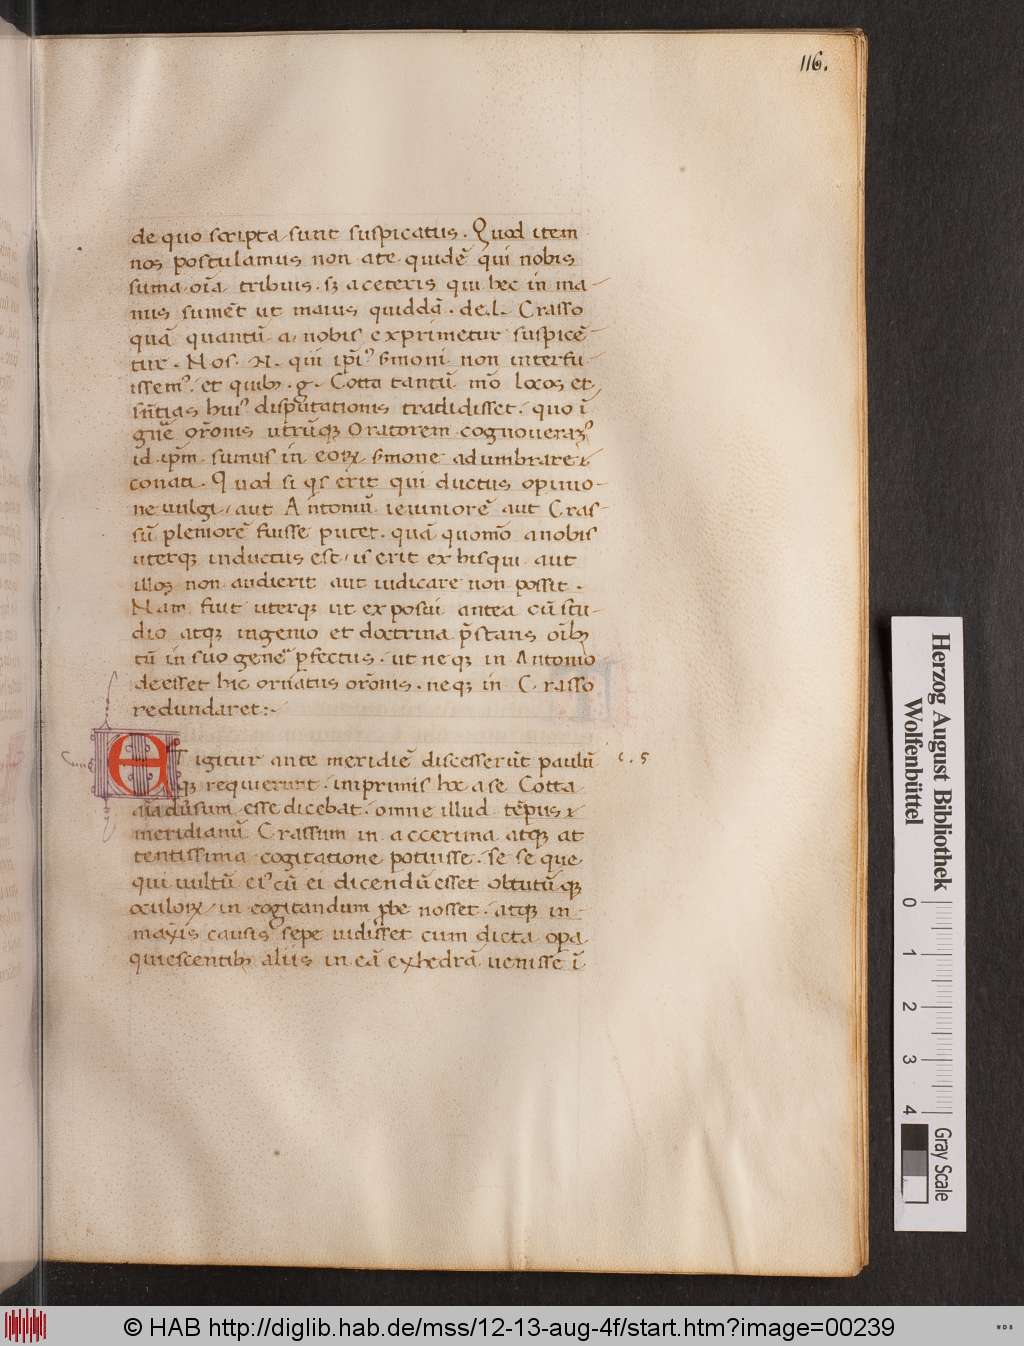 116.
de quo scripta sunt suspicatus. Quod item
nos postulamus non a te quidē qui nobis
suma oīa tribuis. sꝫ a ceteris qui hec in ma-
nus sumēt ut maius quiddā. de .l. Crasso
quā quantū a nobis exprimetur suspicē-
tur. Nos .N. qui ipīꝰ s̄moni non interfu-
issemꝰ. et quibꝫ .g. Cotta tantū mō locos et
sn̄tias huiꝰ disputationis tradidisset. quo ī
gn̄e or̄onis utrūqꝫ Oratorem cognoueramꝰ
id ipm̄ sumus in eoꝝ s̄mone adumbrare
conati. Quod si qs erit qui ductus opinio-
ne uulgi, aut Antoniū ieiuniorē aut Cras-
sū pleniorē fuisse putet. quā quomō a nobis
uterqꝫ inductus est, is erit ex his qui aut
illos non audierit aut iudicare non possit.
Nam fuit uterqꝫ ut exposui antea cū stu-
dio atqꝫ ingenio et doctrina p̄stans oīb
tū in suo genere ꝑfectus. ut neqꝫ in Antonio
deesset hic ornatus or̄onis. neqꝫ in Crasso
redundaret:-
ET igitur ante meridiē discesserūt paulū
qꝫ requierunt. imprimis hoc a se Cotta
aīaduersum esse dicebat. omne illud tēpus
meridianū Crassum in accerima atqꝫ at
tentissima cogitatione potuisse. se se que
qui uultū eiꝰ cū ei dicendū esset obtutū qꝫ
oculoꝝ, in cogitandum ꝓbe nosset. atqꝫ in
maxīs causis sepe uidisset cum dicta opa
quiescentibꝫ aliis in eā exhedrā uenisse ī
c. 5
Herzog August Bibliothek
Wolfenbüttel
0 1 2 3 4
Gray Scale
© HAB http://diglib.hab.de/mss/12-13-aug-4f/start.htm?image=00239